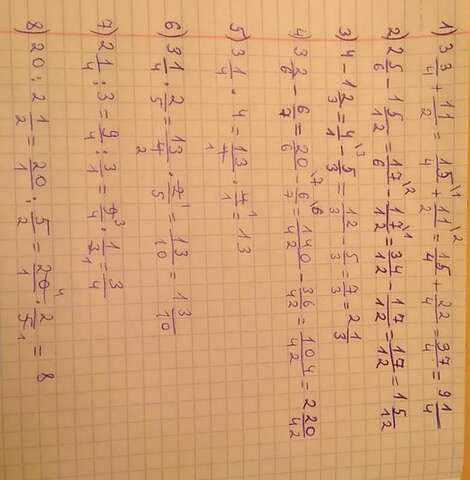 1) 3 3/4 + 11/2 = 15/4 \1 + 11/2 \2 = 15/4 + 22/4 = 37/4 = 9 1/4
2) 2 5/6 - 1 5/12 = 17/6 \2 - 17/12 \1 = 34/12 - 17/12 = 17/12 = 1 5/12
3) 4 - 1 2/3 = 4/1 \3 - 5/3 = 12/3 - 5/3 = 7/3 = 2 1/3
4) 3 2/6 - 6/7 = 20/6 \7 - 6/7 \6 = 140/42 - 36/42 = 104/42 = 2 20/42
5) 3 1/4 · 4 = 13/4 1 · 4/1 1 = 13
6) 3 1/4 · 2/5 = 13/4 2 · 2/5 1 = 13/10 = 1 3/10
7) 2 1/4 : 3 = 9/4 : 3/1 = 9/4 3 · 1/3 1 = 3/4
8) 20 : 2 1/2 = 20/1 : 5/2 = 20/1 4 · 2/5 1 = 8